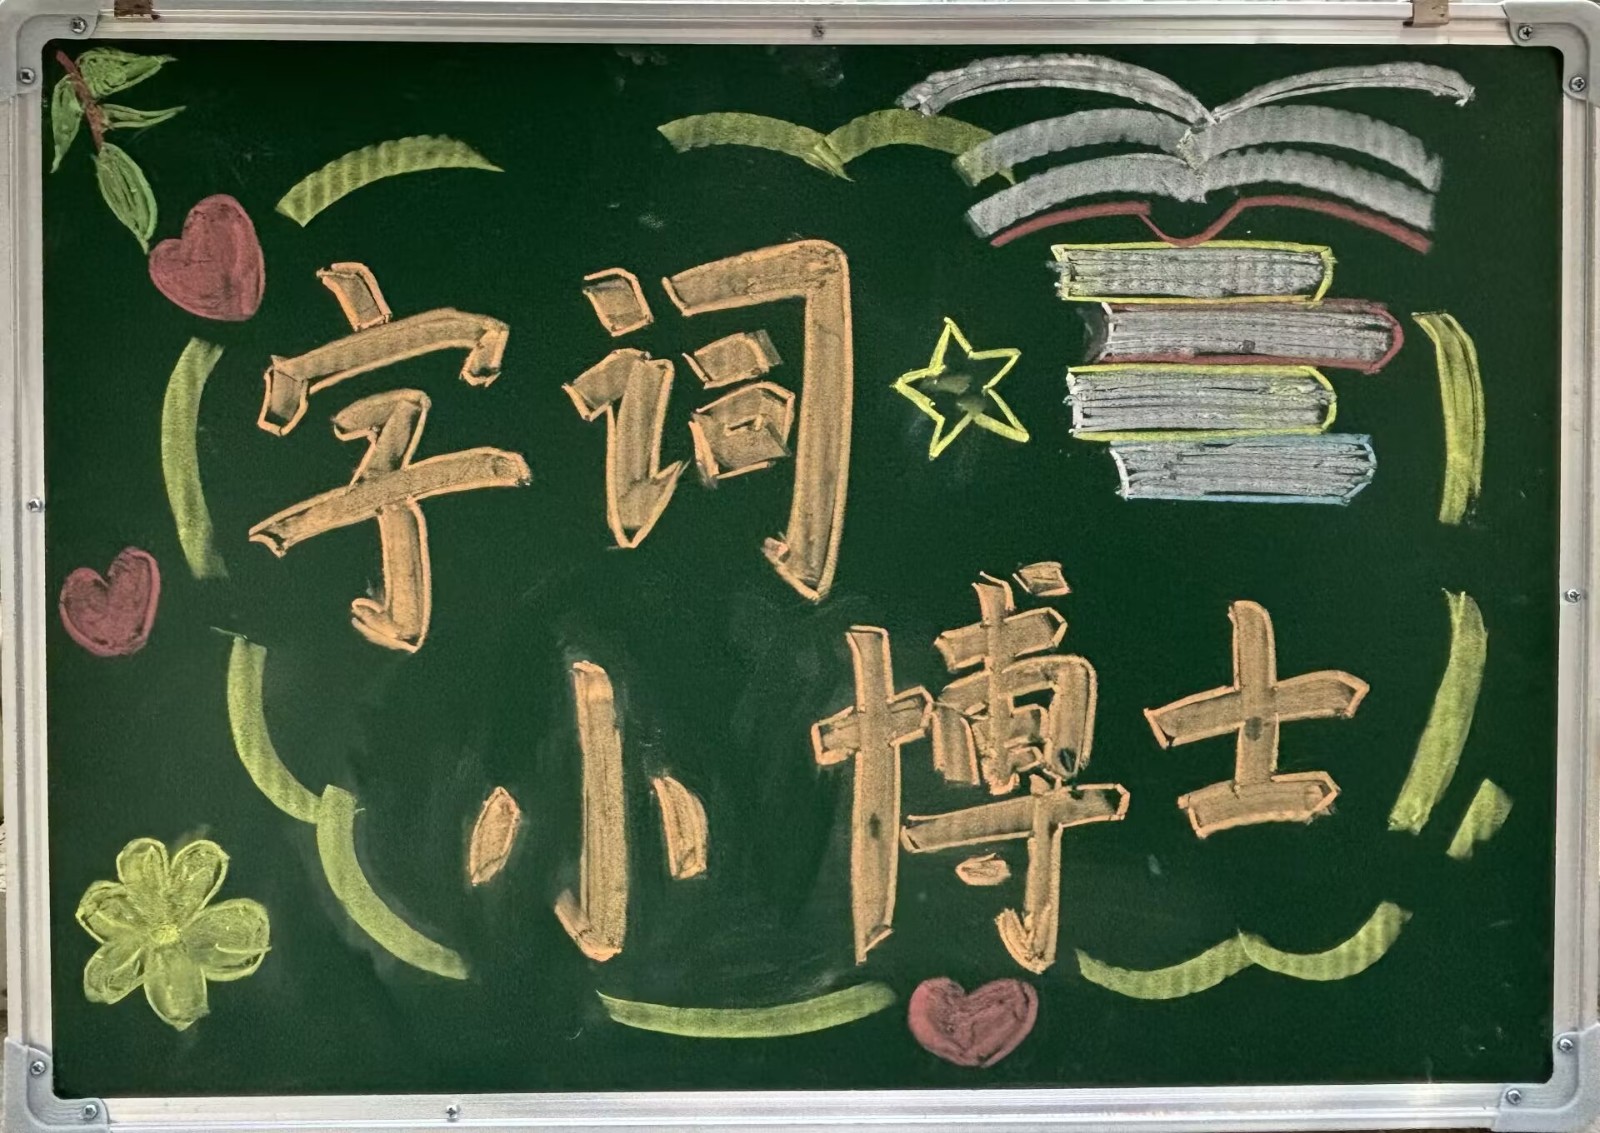 字词
小博士